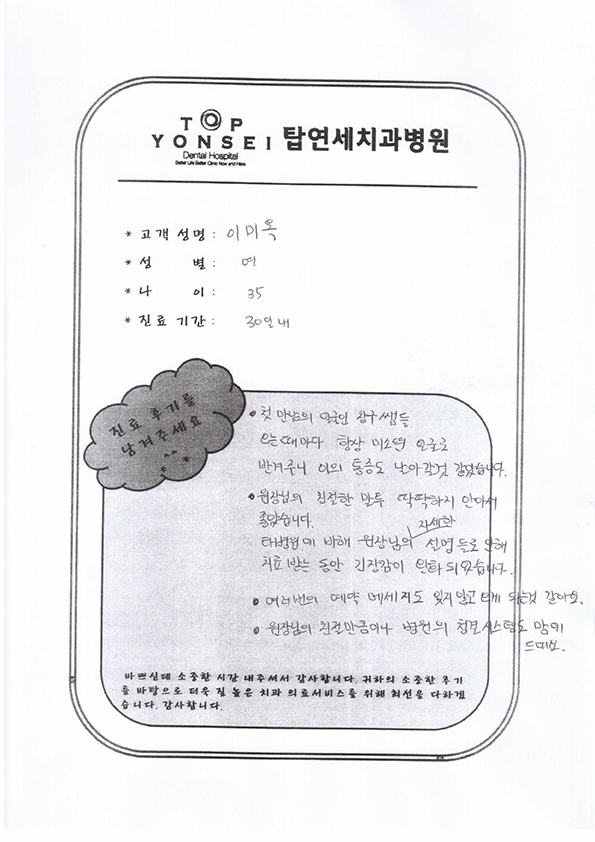 TOP
YONSEI 탑연세치과병원
Dental Hospital
Better Life Better Clinic Now and Here
* 고객 성명 : 이미옥
* 성 별 : 여
* 나 이 : 35
* 진료 기간 : 30일 내
진료 후기를
남겨주세요
^^
* *
• 첫 만남의 창구쌤들
오는때마다 항상 미소띈 얼굴로
반겨주니 이의 통증도 나아갈것 같았습니다.
• 원장님의 친절한 말투 딱딱하지 안아서
좋았습니다.
자세한
타병원에 비해 원장님의 설명들로 인해
치료 받는 동안 긴장감이 완화 되었습니다.
• 여러번의 예약 메세지도 잊지않고 오게 되는것 같아요.
• 원장님의 친절만큼이나 병원의 청결시스템도 맘에
드네요.
바쁘신데 소중한 시간 내주셔서 감사합니다. 귀하의 소중한 후기
를 바탕으로 더욱 질 높은 치과 의료서비스를 위해 최선을 다하겠
습니다. 감사합니다.